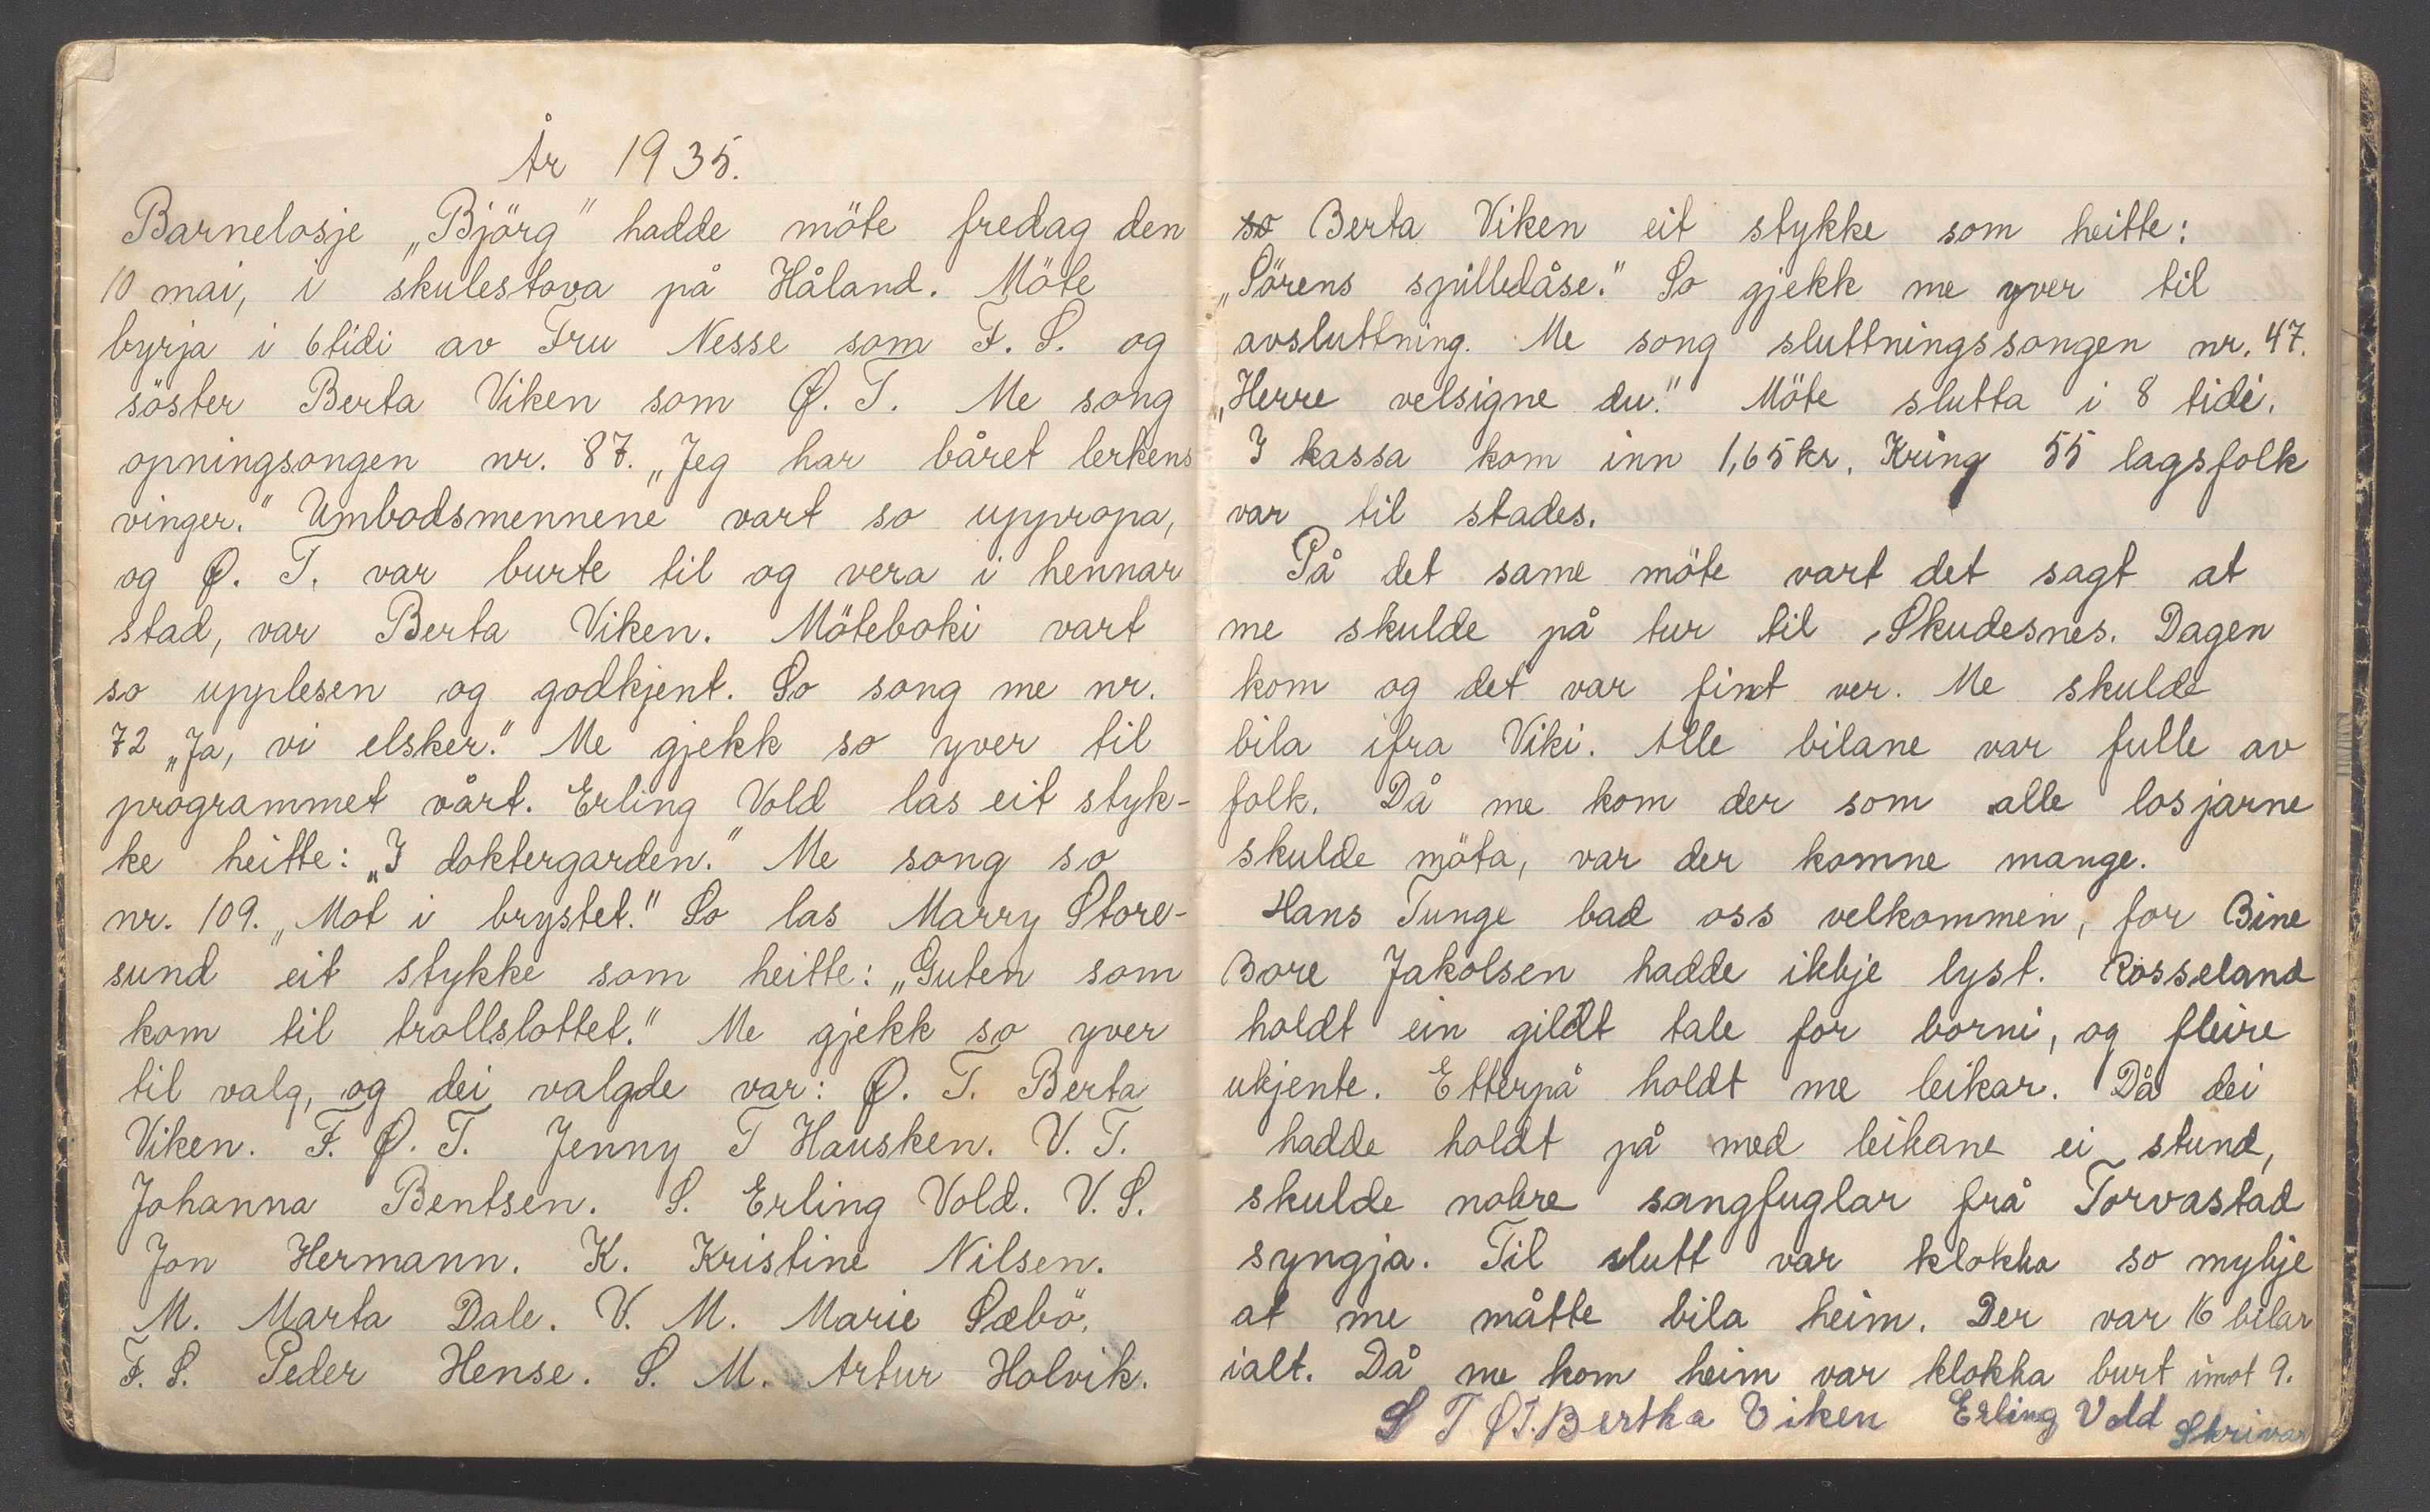 År 1935.
Barnelosje „Björg" hadde möte fredag den
10 mai, i skulestova på Håland. Möte
byrja i 6 tidi av Fru Nesse som F. S. og
söster Berta Viken som Ø. T. Me song
opningsongen nr. 87. „Jeg har båret lerkens
vinger." Umbodsmennene vart so uppropa,
og Ø. T. var burte til og vera i hennar
stad, var Berta Viken. Möteboki vart
so upplesen og godkjent. So song me nr.
72 „Ja, vi elsker." Me gjekk so yver til
programmet vårt. Erling Vold las eit styk-
ke heitte: „I doktergarden." Me song so
nr. 109. „Mot i brystet." So las Marry Store-
sund eit stykke som heitte: „Guten som
kom til trollslottet." Me gjekk so yver
til valg, og dei valgde var: Ø. T. Berta
Viken. F. Ø. T. Jenny T Hausken. V. T.
Johanna Bentsen. S. Erling Vold. V. S.
Jon Hermann. K. Kristine Nilsen.
M. Marta Dale. V. M. Marie Sæbö.
F. S. Peder Hense. S. M. Artur Holvik.
so Berta Viken eit stykke som heitte:
„Sörens spilledåse." So gjekk me yver til
avsluttning. Me song sluttningssongen nr. 47.
„Herre velsigne du." Möte slutta i 8 tidi.
I kassa kom inn 1,65 kr. Kring 55 lagsfolk
var til stades.
På det same möte vart det sagt at
me skulde på tur til Skudesnes. Dagen
kom og det var fint ver. Me skulde
bila ifra Viki. Alle bilane var fulle av
folk. Då me kom der som alle losjarne
skulde möta, var der komne mange.
Hans Tunge bad oss velkommen, for Bine
Bore Jakolsen hadde ikkje lyst. Rosseland
holdt ein gildt tale for borni, og fleire
ukjente. Etterpå holdt me leikar. Då dei
hadde holdt på med leikane ei stund,
skulde nokre sangfuglar frå Torvastad
syngja. Til slutt var klokka so mykje
at me måtte bila heim. Der var 16 bilar
ialt. Då me kom heim var klokka burt imot 9.
S T ØT. Bertha Viken Erling Vold Skrivar